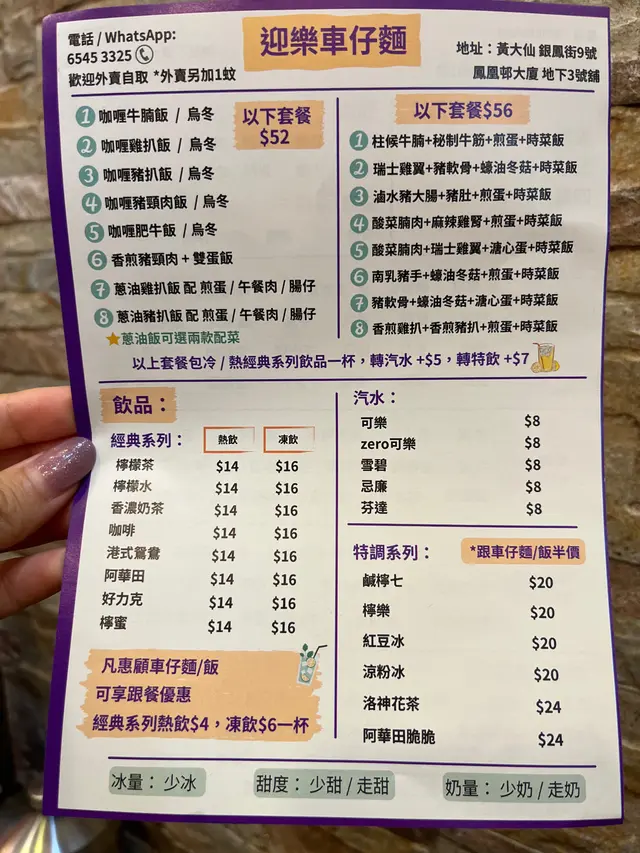 電話 / WhatsApp:
6545 3325
歡迎外賣自取 *外賣另加1蚊
迎樂車仔麵
地址：黃大仙 銀鳳街9號
鳳凰邨大廈 地下3號舖
以下套餐
$52
1 咖喱牛腩飯 / 烏冬
2 咖喱雞扒飯 / 烏冬
3 咖喱豬扒飯 / 烏冬
4 咖喱豬頸肉飯 / 烏冬
5 咖喱肥牛飯 / 烏冬
6 香煎豬頸肉 + 雙蛋飯
7 蔥油雞扒飯 配 煎蛋 / 午餐肉 / 腸仔
8 蔥油豬扒飯 配 煎蛋 / 午餐肉 / 腸仔
蔥油飯可選兩款配菜
以下套餐$56
1 柱候牛腩+秘制牛筋+煎蛋+時菜飯
2 瑞士雞翼+豬軟骨+蠔油冬菇+時菜飯
3 滷水豬大腸+豬肚+煎蛋+時菜飯
4 酸菜腩肉+麻辣雞腎+煎蛋+時菜飯
5 酸菜腩肉+瑞士雞翼+溏心蛋+時菜飯
6 南乳豬手+蠔油冬菇+煎蛋+時菜飯
7 豬軟骨+蠔油冬菇+溏心蛋+時菜飯
8 香煎雞扒+香煎豬扒+煎蛋+時菜飯
以上套餐包冷 / 熱經典系列飲品一杯，轉汽水 +$5，轉特飲 +$7
飲品：
經典系列： 熱飲 凍飲
檸檬茶 $14 $16
檸檬水 $14 $16
香濃奶茶 $14 $16
咖啡 $14 $16
港式鴛鴦 $14 $16
阿華田 $14 $16
好力克 $14 $16
檸蜜 $14 $16
凡惠顧車仔麵/飯
可享跟餐優惠
經典系列熱飲$4，凍飲$6一杯
汽水：
可樂 $8
zero可樂 $8
雪碧 $8
忌廉 $8
芬達 $8
特調系列： *跟車仔麵/飯半價
鹹檸七 $20
檸樂 $20
紅豆冰 $20
涼粉冰 $20
洛神花茶 $24
阿華田脆脆 $24
冰量： 少冰
甜度： 少甜 / 走甜
奶量： 少奶 / 走奶